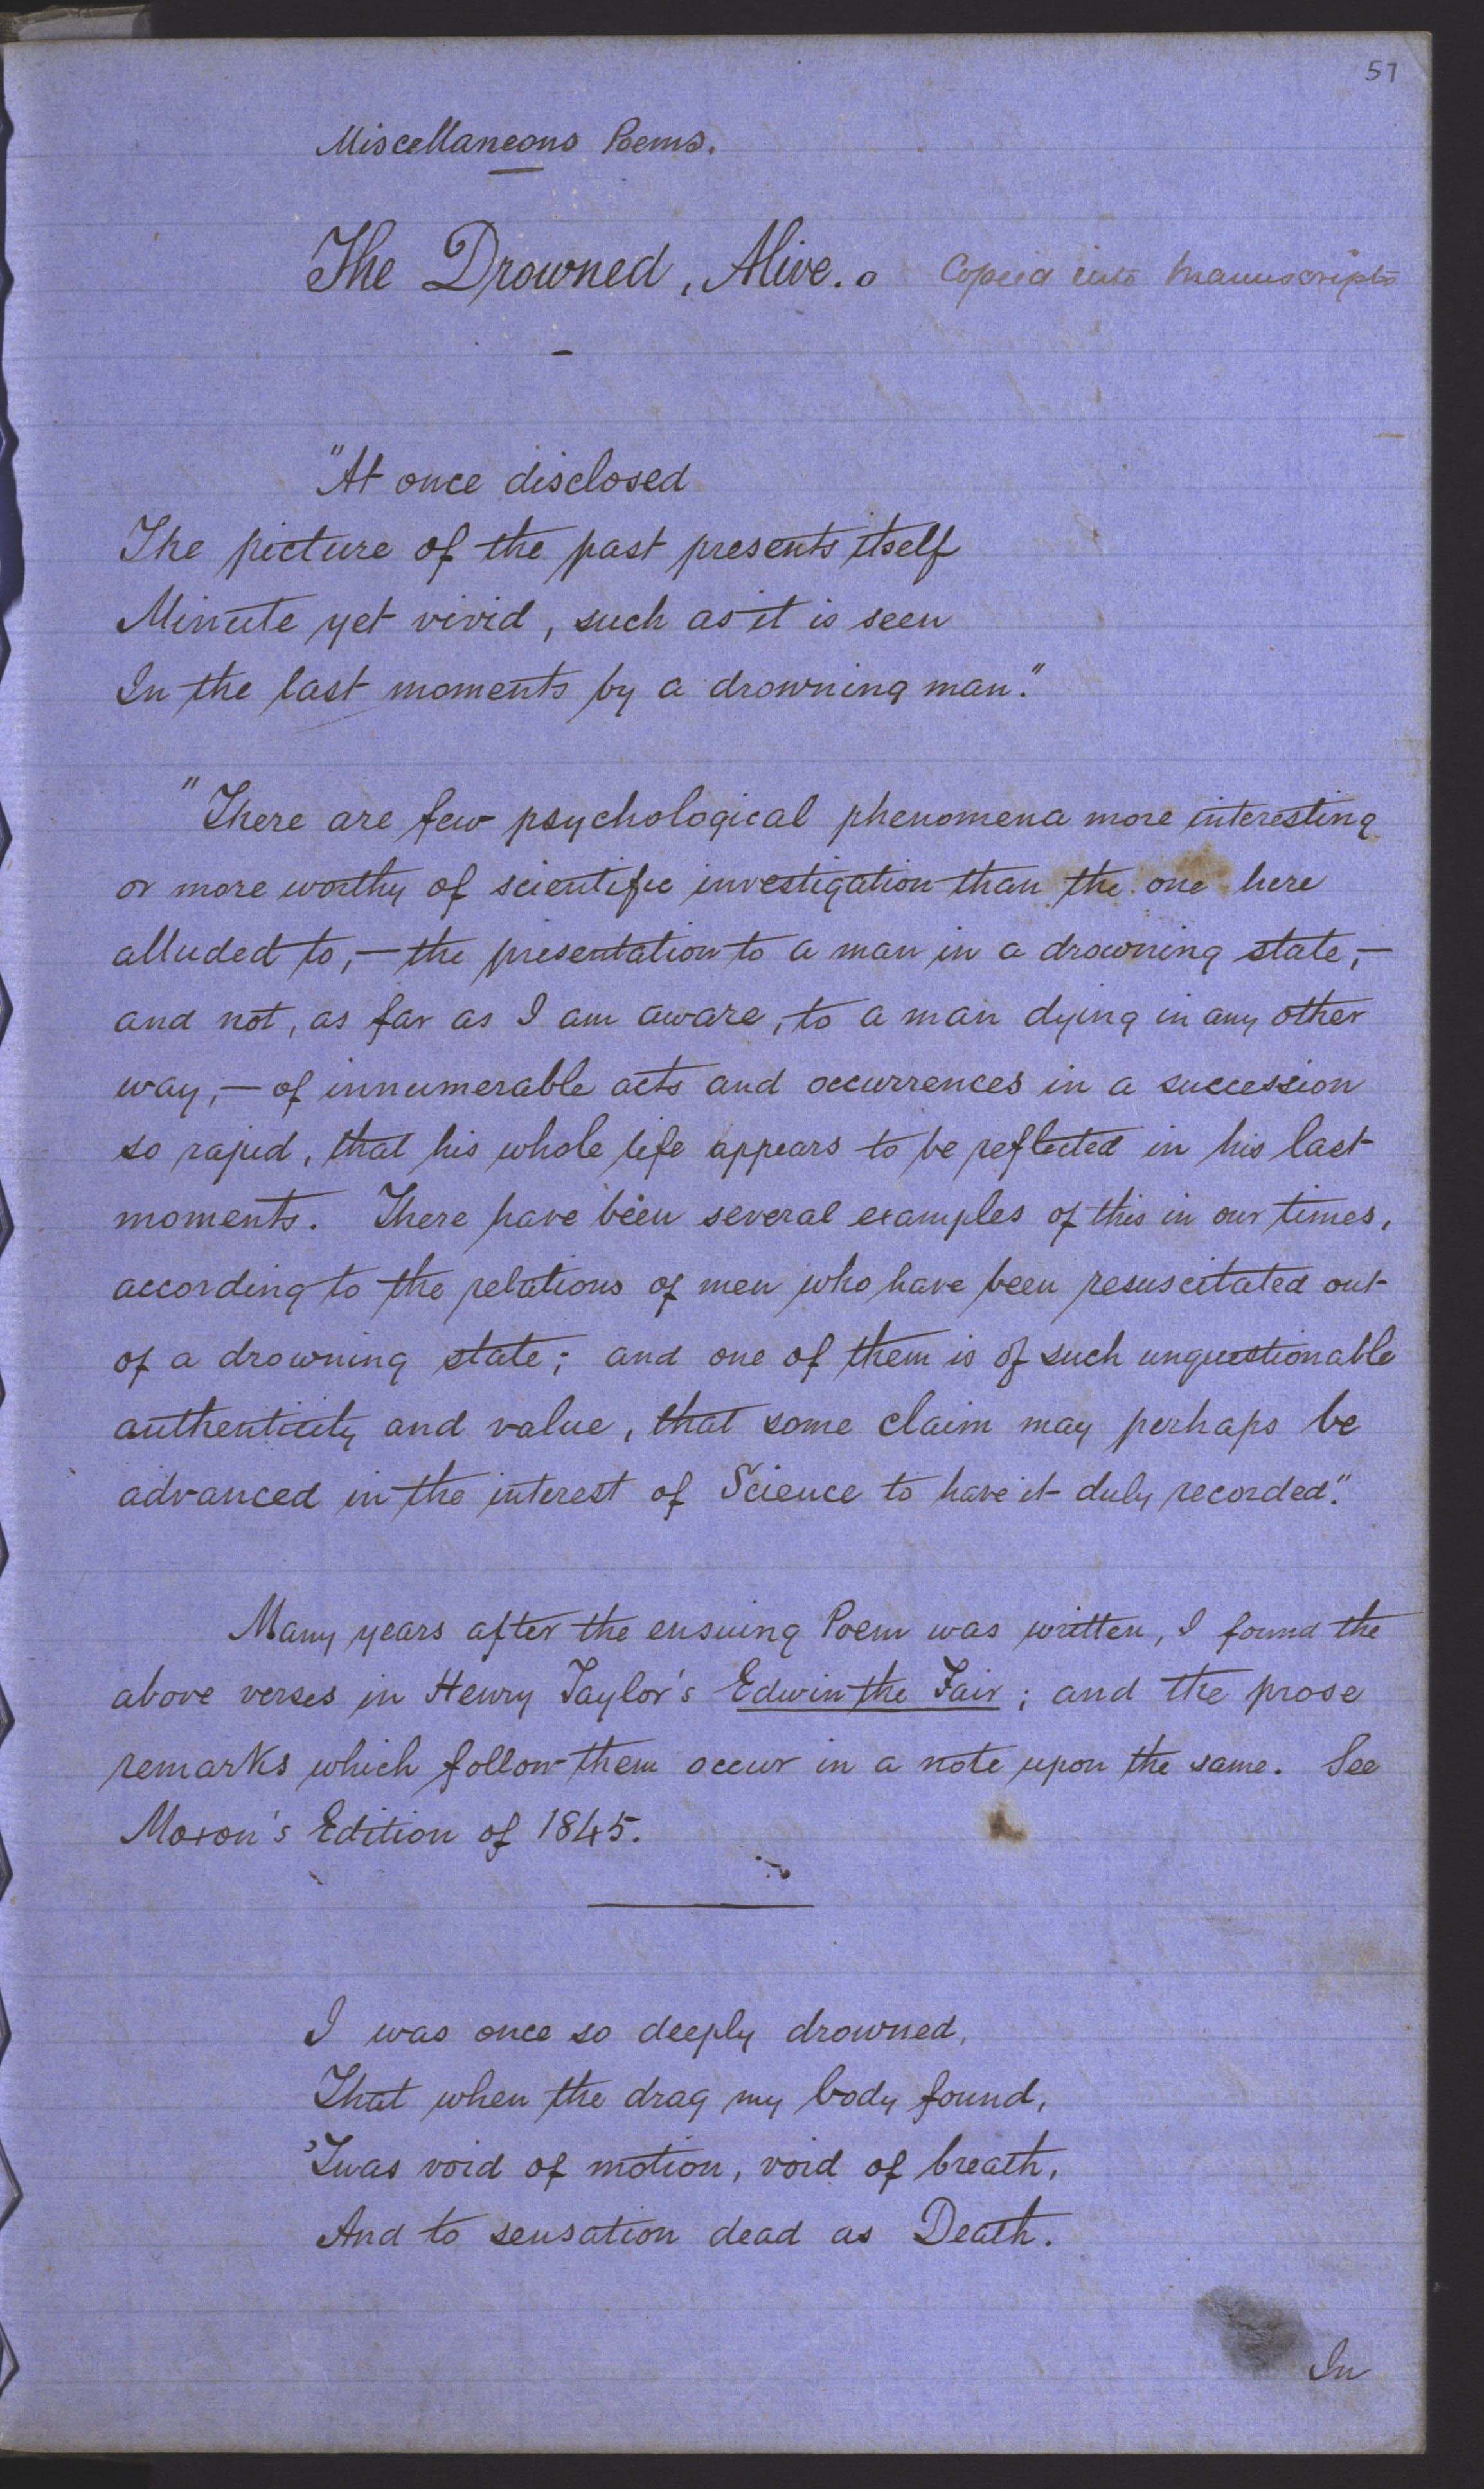 57
Miscellaneous Poems.
The Drowned, Alive. Copied into Manuscripts
"At once disclosed
The picture of the past presents itself
Minute yet vivid, such as it is seen
In the last moments by a drowning man."
"There are few psychological phenomena more interesting
or more worthy of scientific investigation than the one here
alluded to,—the presentation to a man in a drowning state,—
and not, as far as I am aware, to a man dying in any other
way,—of innumerable acts and occurrences in a succession
so rapid, that his whole life appears to be reflected in his last
moments. There have been several examples of this in our times,
according to the relations of men who have been resuscitated out
of a drowning state; and one of them is of such unquestionable
authenticity and value, that some claim may perhaps be
advanced in the interest of Science to have it duly recorded."
Many years after the ensuing Poem was written, I found the
above verses in Henry Taylor's Edwin the Fair; and the prose
remarks which follow them occur in a note upon the same. See
Moxon's Edition of 1845.
I was once so deeply drowned,
That when the drag my body found,
'Twas void of motion, void of breath,
And to sensation dead as Death.
In